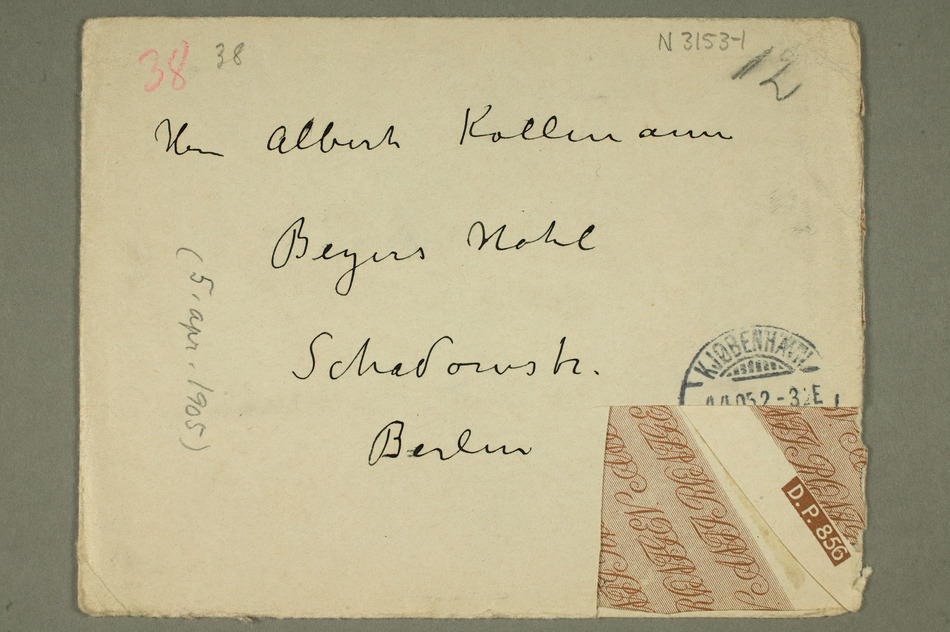 38 38
N 3153-1
12
Herrn Albert Kollmann
Beyers Hotel
Schadowstr.
Berlin
(5. apr. 1905)
KJØBENHAVN
D.P. 856